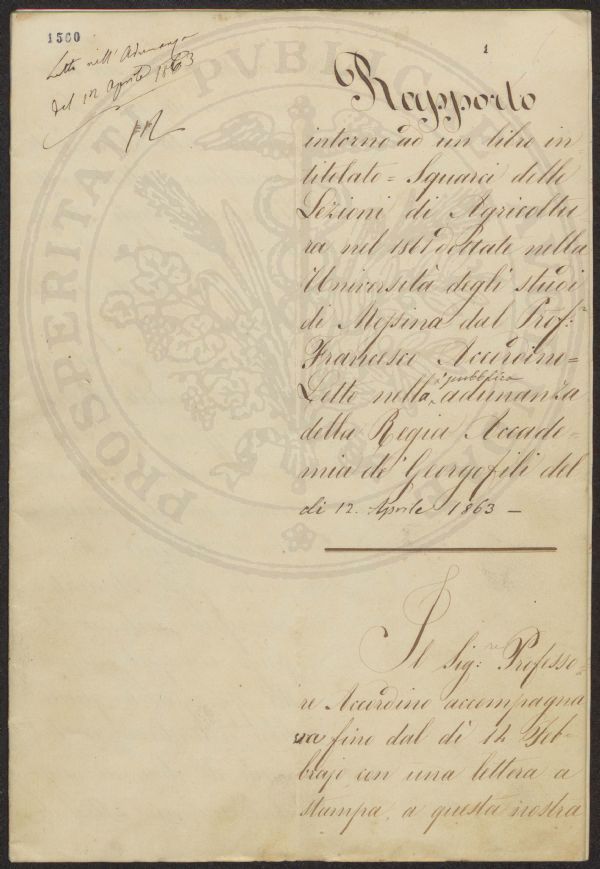 1560
Letto nell'Adunanza
del 12 Aprile 1863
1
Rapporto
intorno ad un libro in-
titolato = Squarci delle
Lezioni di Agricoltu
ra nel 1861 dettate nella
Università degli studi
di Messina dal Prof:re
Francesco Accordino =
Letto nella pubblica adunanza
della Regia Accade-
mia de' Georgofili del
di 12. Aprile 1863 —
Il Sig:re Professo-
re Accordino accompagna
va fino dal dì 14 Feb-
brajo con una lettera a
stampa, a questa nostra
PROSPERITATI PUBLICAE